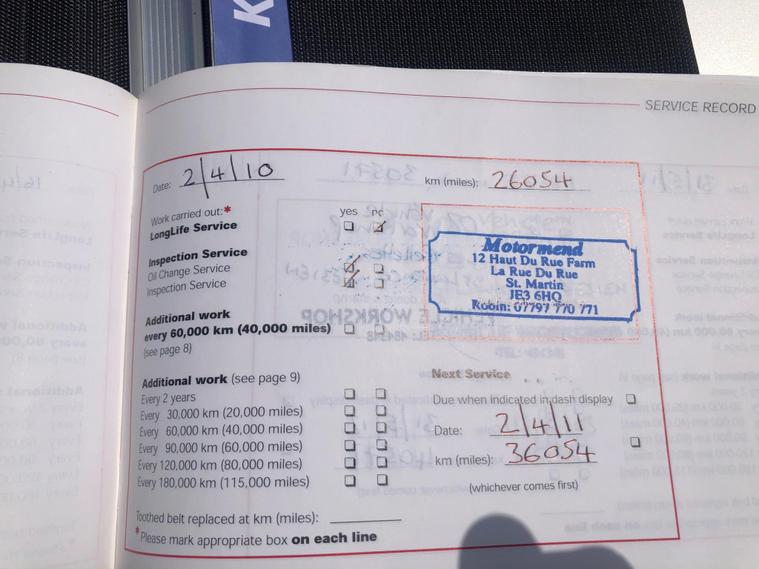 K
SERVICE RECORD
Date: 2/4/10 km (miles): 26054
Work carried out:* yes no
LongLife Service
Inspection Service
Oil Change Service
Inspection Service
Additional work
every 60,000 km (40,000 miles)
(see page 8)
Motormend
12 Haut Du Rue Farm
La Rue Du Rue
St. Martin
JE3 6HQ
Robin: 07797 770 771
Additional work (see page 9)
Every 2 years
Every 30,000 km (20,000 miles)
Every 60,000 km (40,000 miles)
Every 90,000 km (60,000 miles)
Every 120,000 km (80,000 miles)
Every 180,000 km (115,000 miles)
Next Service
Due when indicated in dash display
Date: 2/4/11
km (miles): 36054
(whichever comes first)
Toothed belt replaced at km (miles):
*Please mark appropriate box on each line